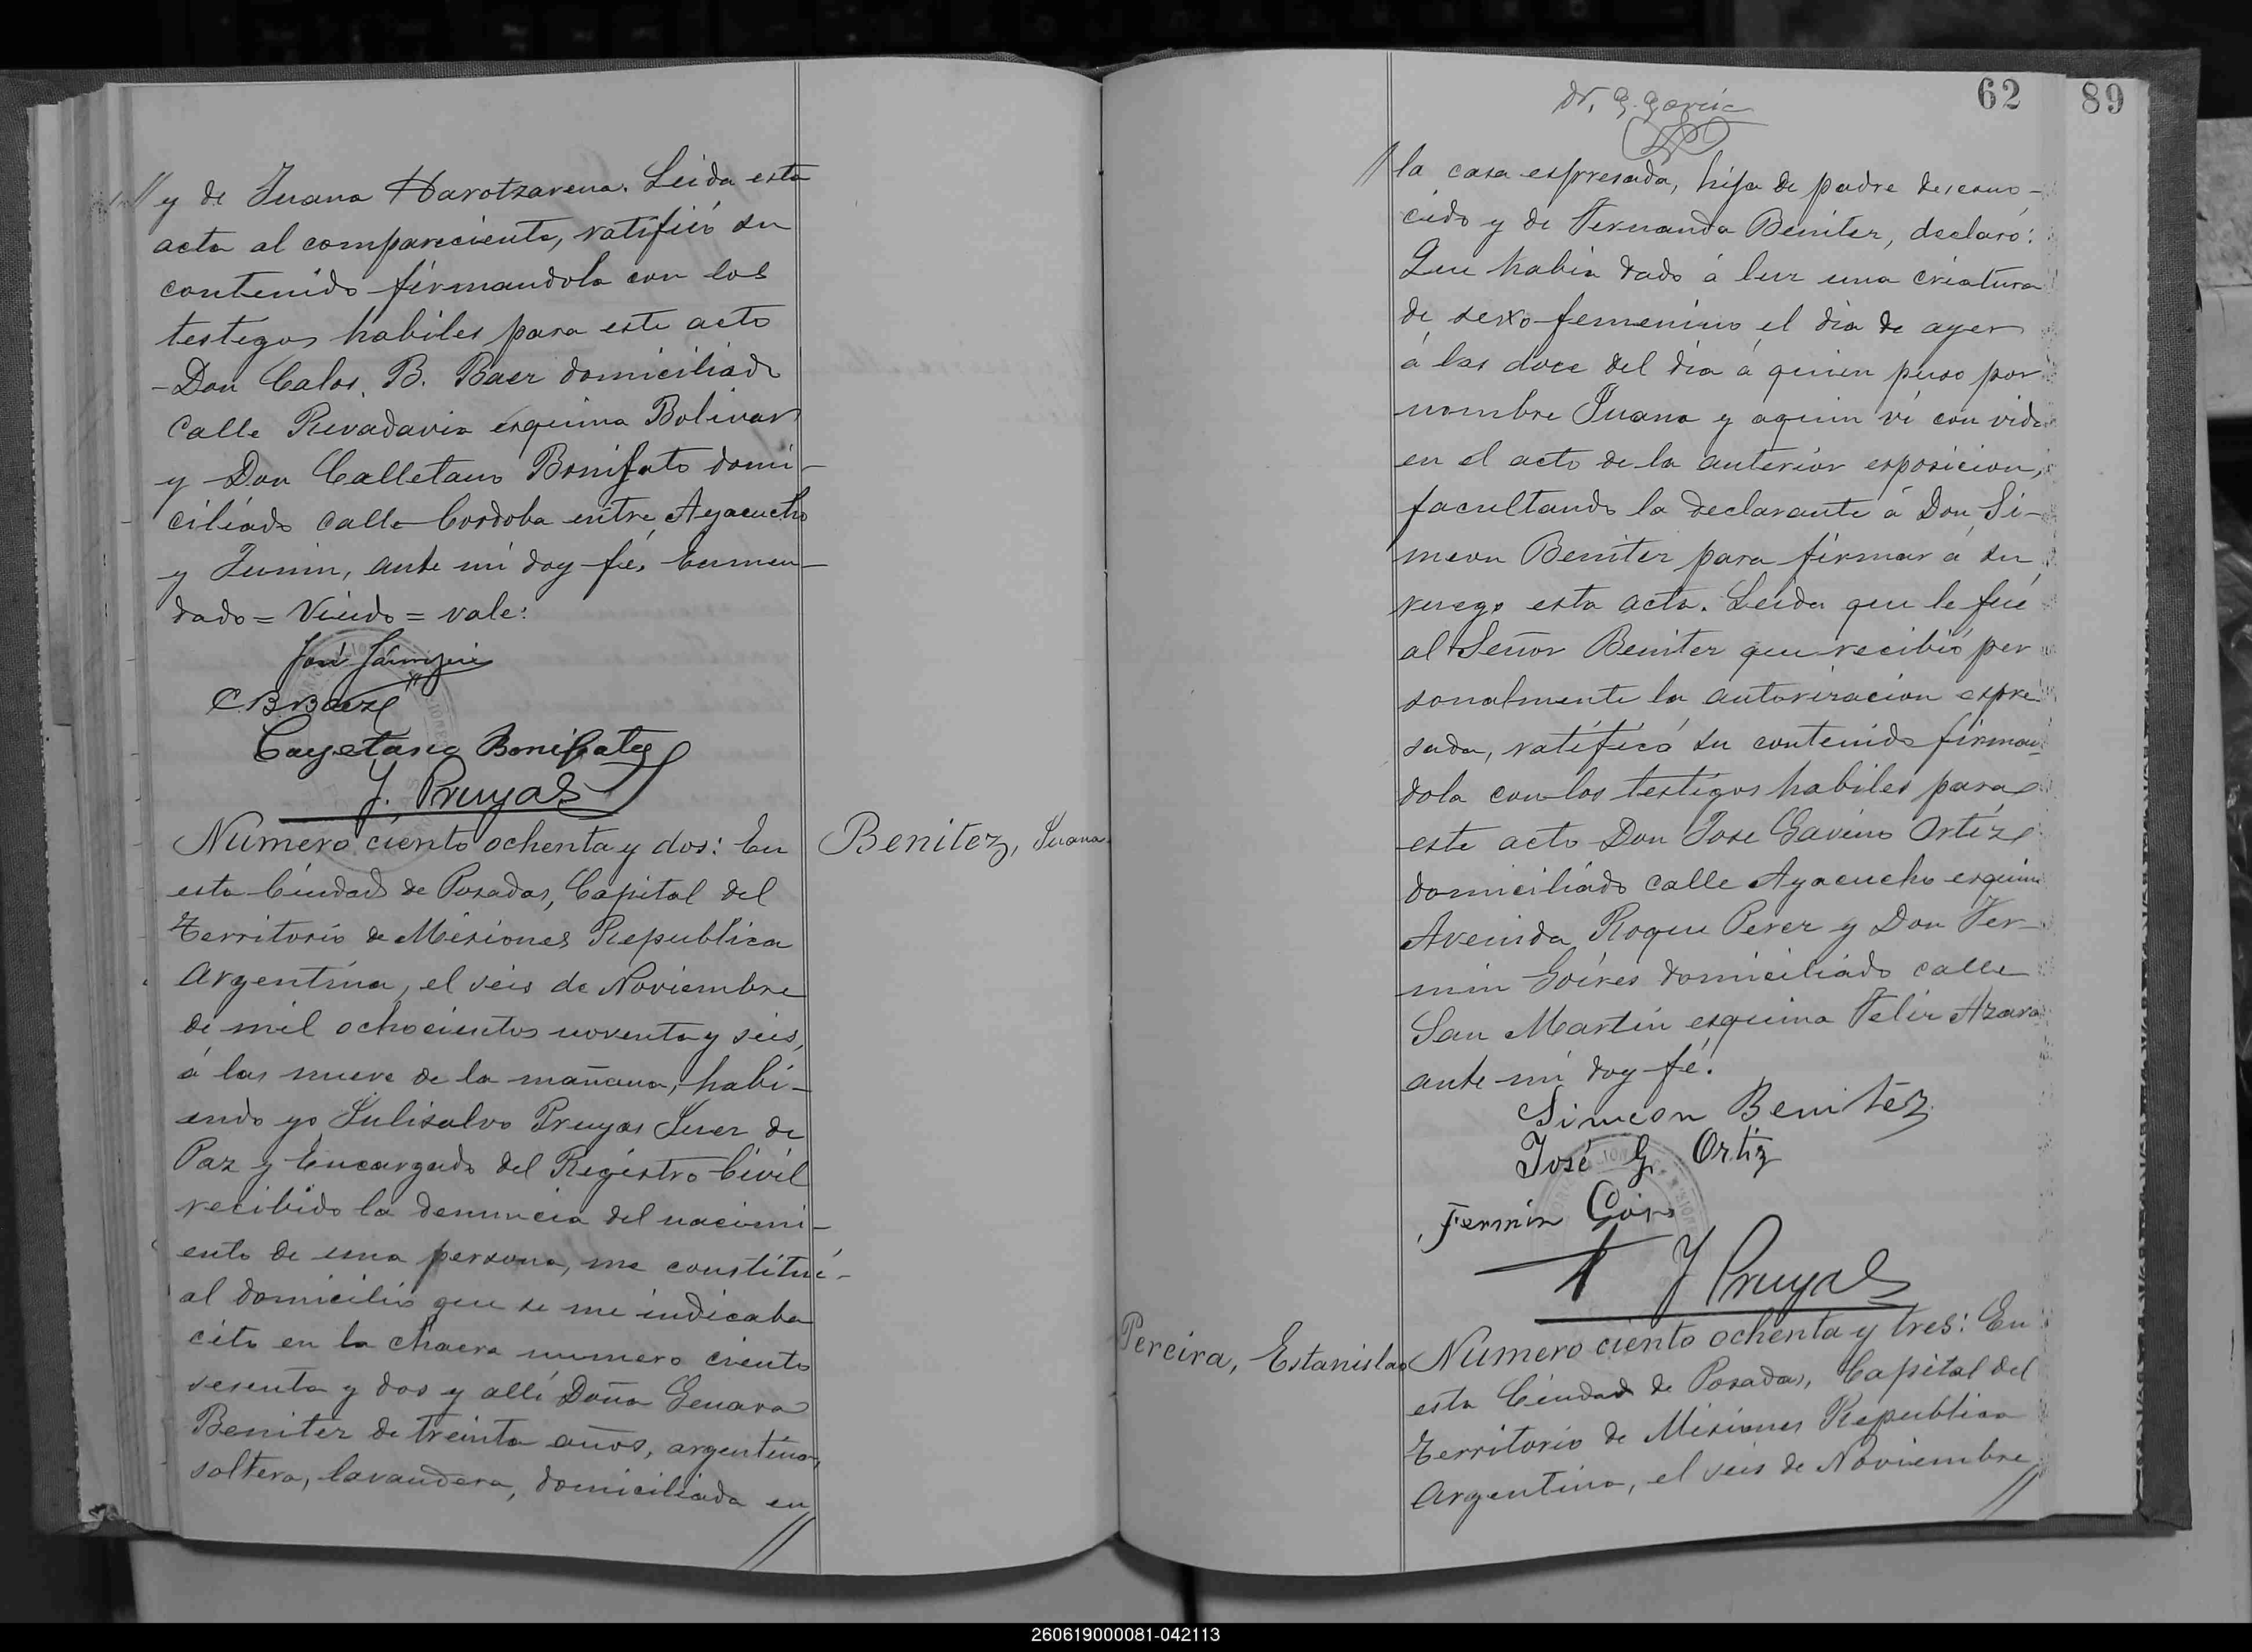 // y de Juana Harotzarena. Leida esta
acta al compareciente, ratificó su
contenido firmandola con los
testigos habiles para este acto
Don Calos. B. Baez domiciliado
Calle Revadavia esquina Bolivar
y Don Calletano Bonifato domi-
ciliado calle Cordoba entre Ayacucho
y Junin, ante mi doy fé. Enmen-
dado = Viudo = vale:
José
C. B. Baez
Cayetano Bonifato
J. Pruyas
Numero ciento ochenta y dos: En
Benitez, Juana
esta Ciudad de Posadas, Capital del
Territorio de Misiones Republica
Argentina, el seis de Noviembre
de mil ochocientos noventa y seis,
á las nueve de la mañana, habi-
endo yo Julisalvo Pruyas Juez de
Paz y Encargado del Registro Civil
recibido la denuncia del nacimi-
ento de una persona, me constituí
al domicilio que se me indicaba
cito en la chacra numero ciento
sesenta y dos y allí Doña Genara
Benitez de treinta años, argentina,
soltera, lavandera, domiciliada en
//
Dr, G. Garcia
62
89
// la casa espresada, hija de padre descono-
cido y de Fernanda Benitez, declaró:
Que habia dado á luz una criatura
de sexo femenino el dia de ayer
á las doce del dia á quien puso por
nombre Juana y aquien ví con vida
en el acto de la anterior esposicion,
facultando la declarante á Don Si-
meon Benitez para firmar á su
ruego esta acta. Leida que le fué
al Señor Benitez que recibió per
sonalmente la autorizacion espre
sada, ratificó su contenido firman-
dola con los testigos habiles para
este acto Don Jose Gavino Ortiz
domiciliado calle Ayacucho esquina
Avenida Roque Perez y Don Fer-
min Goires domiciliado calle
San Martin esquina Felix Azara
ante mi doy fé.
Simeon Benitez
José G. Ortiz
Fermin
J Pruyas
Pereira, Estanislao
Numero ciento ochenta y tres: En
esta Ciudad de Posadas, Capital del
Territorio de Misiones Republica
Argentina, el seis de Noviembre
//
260619000081-042113